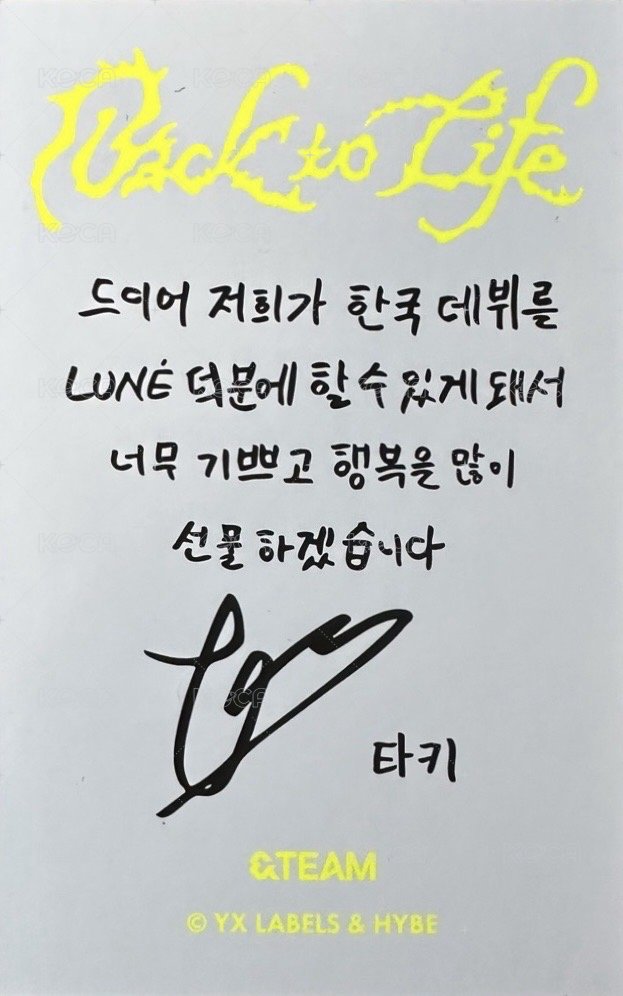 Back to Life
드디어 저희가 한국 데뷔를
LUNÉ 덕분에 할 수 있게 돼서
너무 기쁘고 행복을 많이
선물하겠습니다
타키
&TEAM
© YX LABELS & HYBE